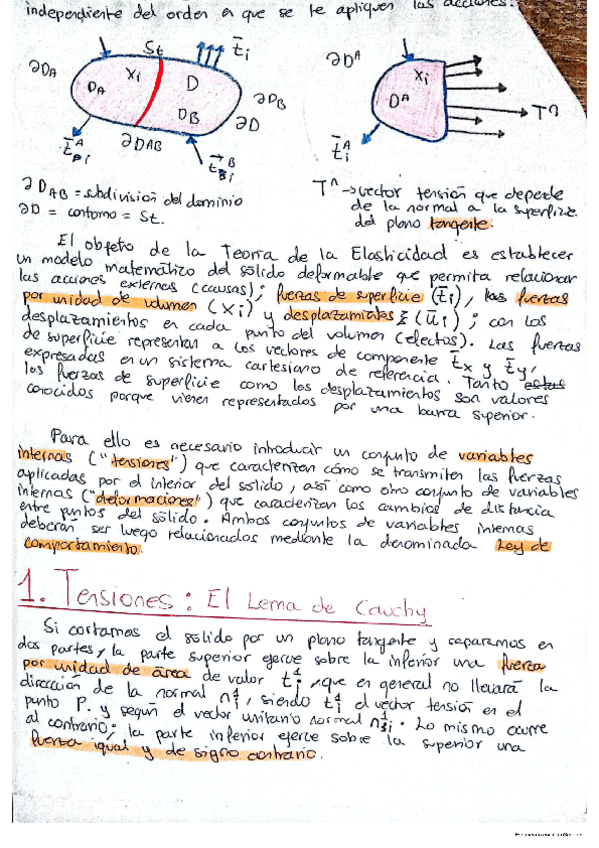 independiente del orden en que se le apliquen las acciones.
∂DA St t̄i
Xi D
DA DB ∂DB
∂DAB ∂D
∂D^A
Xi
D^A T^n
t̄i^A
∂DAB = subdivisión del dominio
∂D = contorno = St.
T^n → vector tensión que depende
de la normal a la superficie
del plano tangente.
El objeto de la Teoría de la Elasticidad es establecer
un modelo matemático del sólido deformable que permita relacionar
las acciones externas (causas); fuerzas de superficie (t̄i), las fuerzas
por unidad de volumen (Xi) y desplazamientos (ūi); con los
desplazamientos en cada punto del volumen (efectos). Las fuerzas
de superficie representan a los vectores de componente t̄x y t̄y,
expresadas en un sistema cartesiano de referencia. Tanto estas
las fuerzas de superficie como los desplazamientos son valores
conocidos porque vienen representados por una barra superior.
Para ello es necesario introducir un conjunto de variables
internas ("tensiones") que caracterizan cómo se transmiten las fuerzas
aplicadas por el interior del sólido, así como otro conjunto de variables
internas ("deformaciones") que caracterizan los cambios de distancia
entre puntos del sólido. Ambos conjuntos de variables internas
deberán ser luego relacionados mediante la denominada Ley de
comportamiento.
1. Tensiones: El Lema de Cauchy
Si cortamos el sólido por un plano tangente y separamos en
dos partes, la parte superior ejerce sobre la inferior una fuerza
por unidad de área de valor ti^1, que en general no llevará la
dirección de la normal ni^1, siendo ti^1 el vector tensión en el
punto P. y según el vector unitario normal. Lo mismo ocurre
al contrario: la parte inferior ejerce sobre la superior una
fuerza igual y de signo contrario.